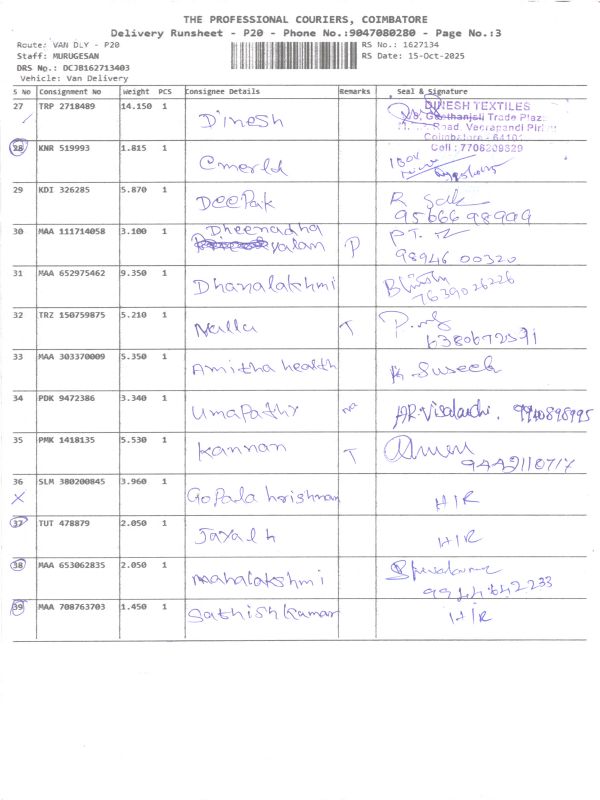 THE PROFESSIONAL COURIERS, COIMBATORE
Delivery Runsheet - P20 - Phone No.:9047080280 - Page No.:3
Route: VAN DLY - P20
RS No.: 1627134
Staff: MURUGESAN
RS Date: 15-Oct-2025
DRS No.: DCJB162713403
Vehicle: Van Delivery
S No Consignment No Weight PCS Consignee Details Remarks Seal & Signature
27 TRP 2718489 14.150 1 Dinesh
DINESH TEXTILES
Trade Plaza
Road, Veerapandi
Coimbatore - 64101
Cell : 7708209329
28 KNR 519993 1.815 1 Cmerld
29 KDI 326285 5.870 1 Deepak
9566698909
30 MAA 111714058 3.100 1 Dheenadha
yalan P PT.
98946 00320
31 MAA 652975462 9.350 1 Dhanalakshmi
7639026226
32 TRZ 150759875 5.210 1 Nalla T
6380672591
33 MAA 303370009 5.350 1 Amitha health K. Suseela
34 PDK 9472386 3.340 1 Umapathy AR. Visalatchi. 9940898995
35 PMK 1418135 5.530 1 Kannan T
9442110717
36 SLM 380200845 3.960 1 Gopala krishnan H/R
X
37 TUT 478879 2.050 1 Jayalh H/R
38 MAA 653062835 2.050 1 Mahalakshmi
9944642233
39 MAA 708763703 1.450 1 Sathish Kumar H/R